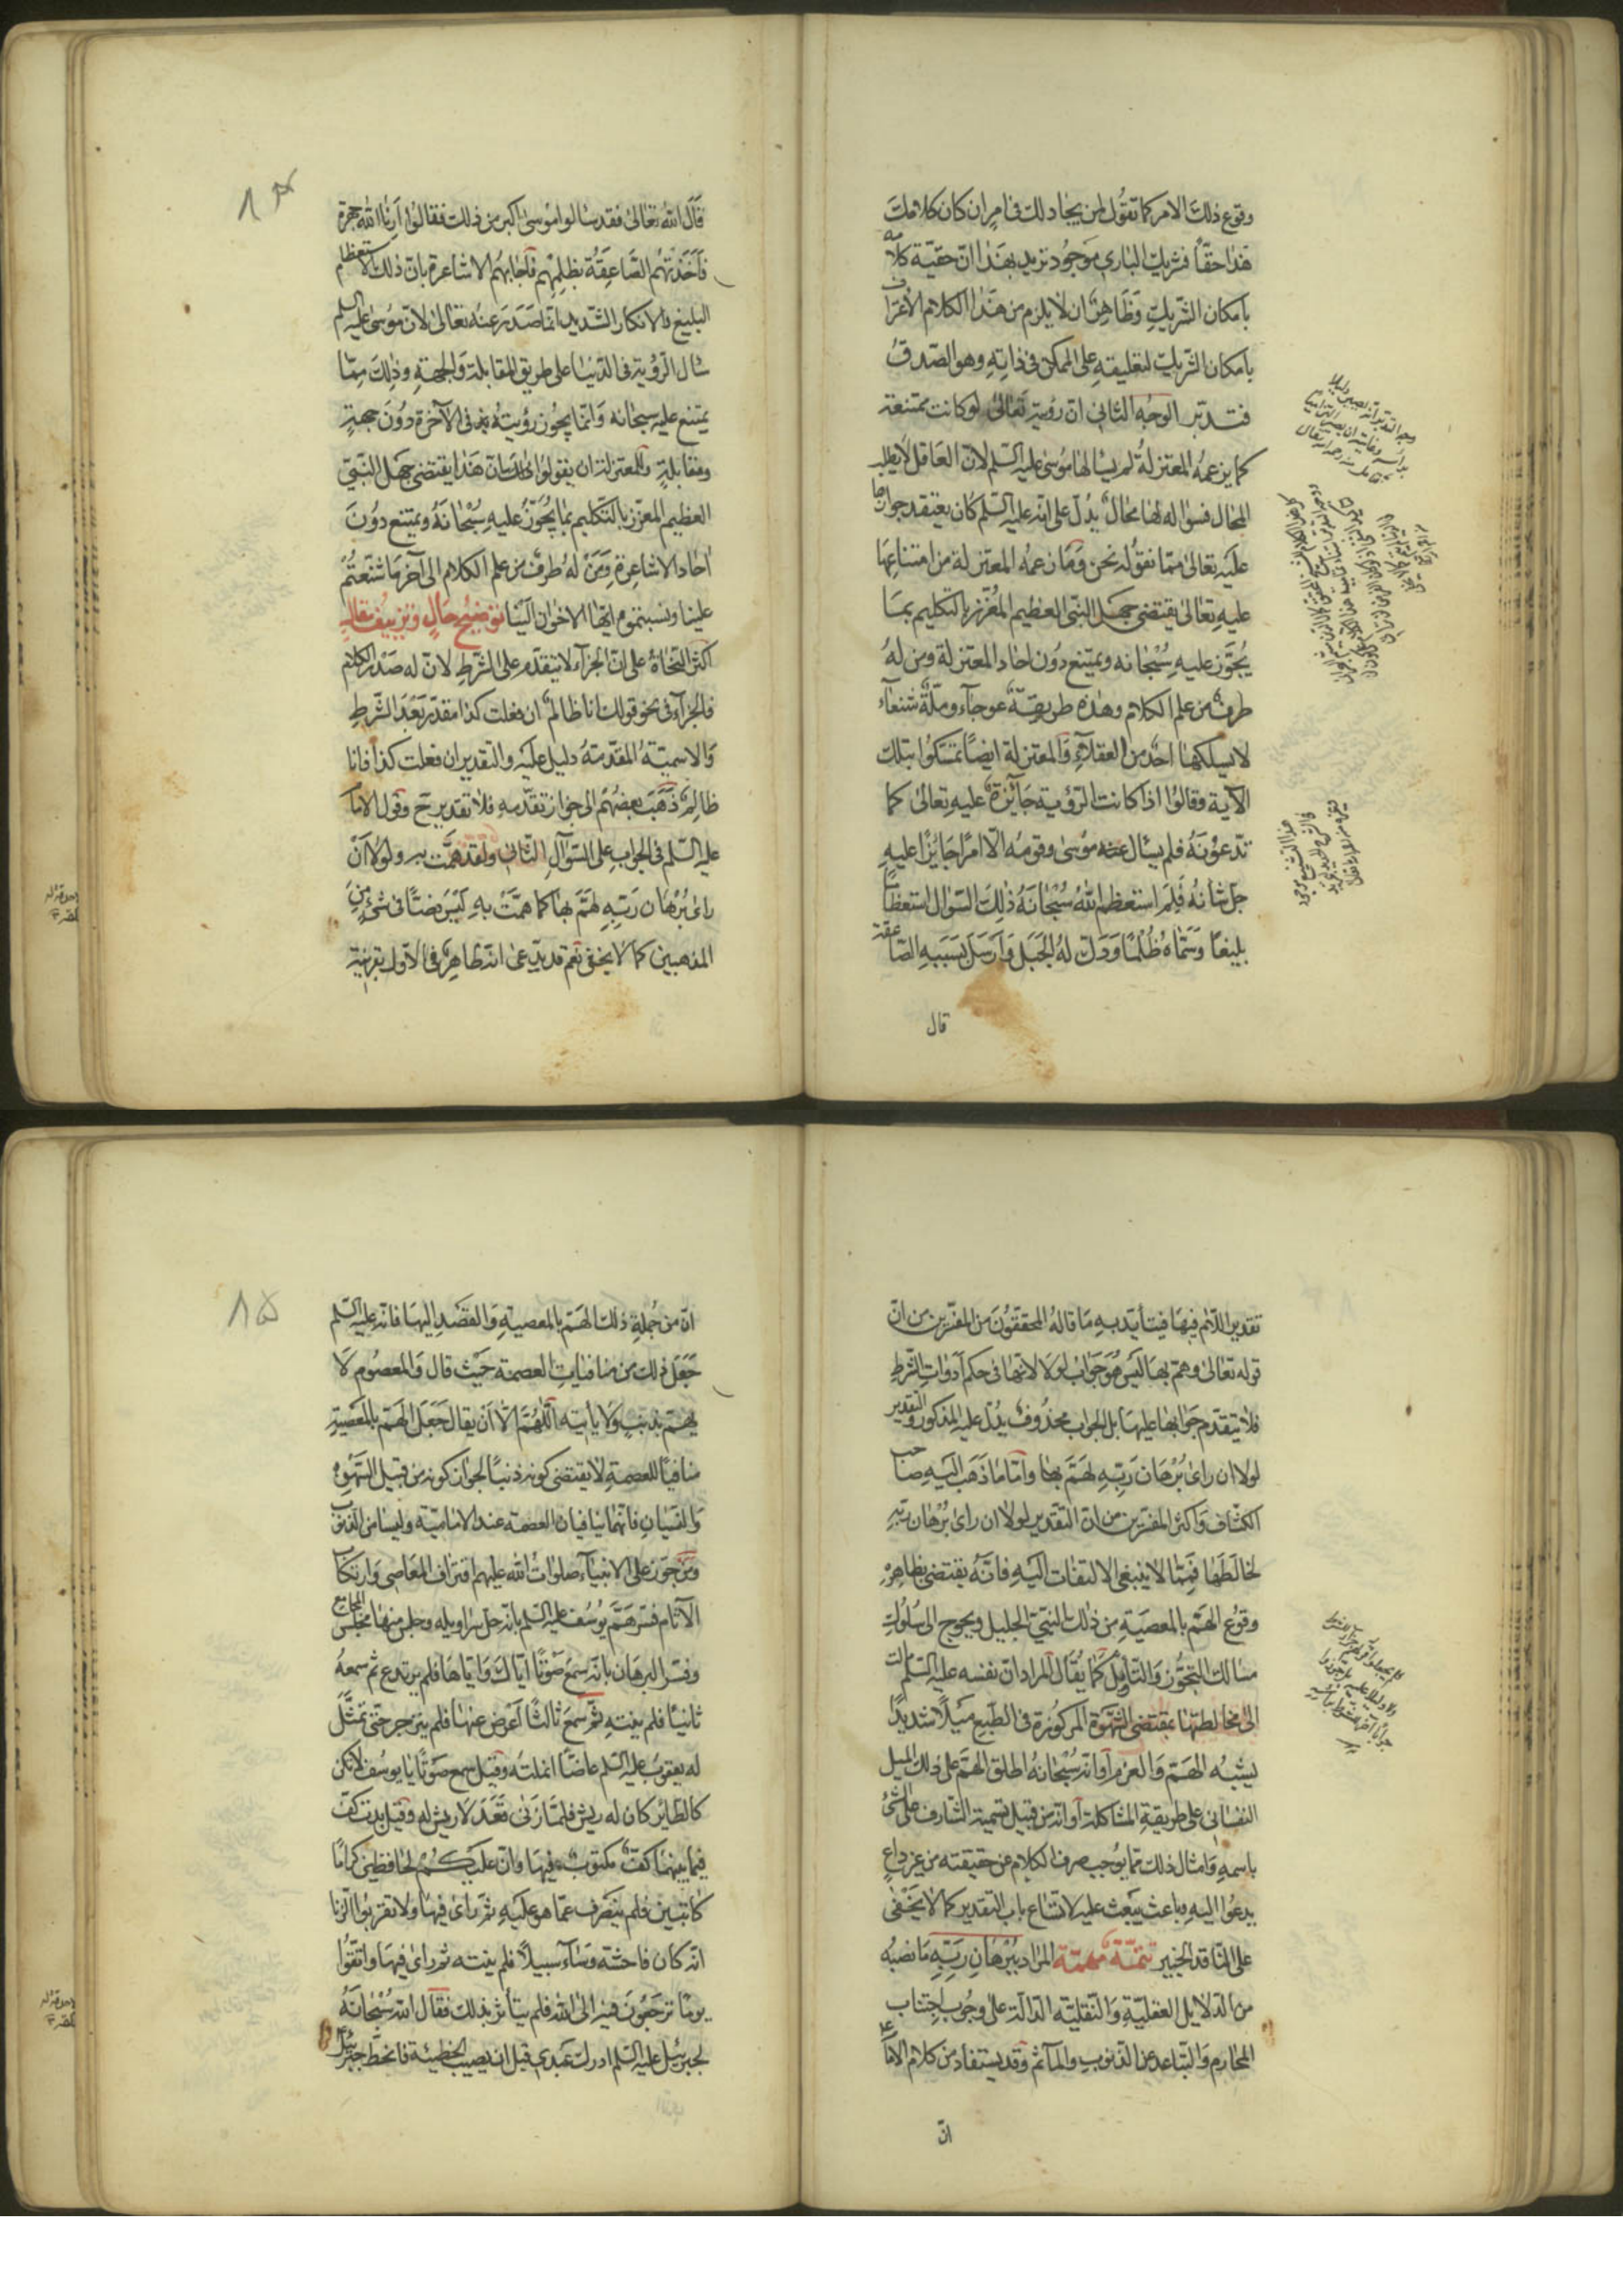 وقوع ذلك الامر كما تقول لمن يجادلك فى امر ان كان كلامك
هذا حقّاً فشريك البارى موجود تريد بهذا انّ حقيّة كلامه
بامكان الشريك وظاهر ان لا يلزم من هذا الكلام الاعتراف
بامكان الشريك لتعليقه على الممكن فى ذاته وهو الصدق
فتدبر الوجه الثانى ان رؤيته تعالى لو كانت ممتنعة
كما يزعمه المعتزلة لم يسالها موسى عليه السلم لان العاقل لا يطلب
المحال فسؤاله لها محال يدل على انه عليه السلم كان يعتقد جوازها
عليه تعالى مما نقوله نحن وما زعمه المعتزلة من امتناعها
عليه تعالى يقتضى جهل النبى العظيم المعزّز بالتكليم بما
يجوز عليه سبحانه ويمتنع دون احاد المعتزلة ومن له
طرف من علم الكلام وهذه طريقة عوجآء وملّة شنعآء
لا يسلكها احد من العقلآء والمعتزلة ايضاً تمسكوا بتلك
الآية وقالوا اذا كانت الرؤية جآئزة عليه تعالى كما
تدعونه فلم يسال عنه موسى وقومه الّا امراً جايزاً عليه
جل شانه فلم استعظم الله سبحانه ذلك السؤال استعظاماً
بليغاً وسمّاه ظلماً ودلّ له الجبل وارسل بسببه الصاعقة
قال
قال الله تعالى فقد سالوا موسى اكبر من ذلك فقالوا ارنا الله جهرة
فاخذتهم الصاعقة بظلمهم فاجابهم الاشاعرة بان ذلك الاستعظام
البليغ والانكار الشديد انما صدر عنه تعالى لان موسى عليه السلم
سال الرؤية فى الدنيا على طريق المقابلة والجهة وذلك ممّا
يمتنع عليه سبحانه وانما يجوز رؤيته فى الآخرة دون جهةٍ
ومقابلةٍ وللمعتزلة ان يقولوا ان هذا يقتضى جهل النبىّ
العظيم المعزز بالتكليم بما يجوز عليه سبحانه ويمتنع دون
احاد الاشاعرة ومن له طرف من علم الكلام الى آخر ما شنعتم
علينا ونسبتموه ايها الاخوان الينا توضيح حال وتزييف مقال
اكثر النحاة على ان الجزآء لا يتقدم على الشرط لان له صدر الكلام
فالجزآء فى نحو قولك انا ظالم ان فعلت كذا مقدر بعد الشرط
والاسميّة المقدّمة دليل عليه والتقدير ان فعلت كذا فانا
ظالم ذهب بعضهم الى جواز تقدّمه فلا تقدير ح وقول الامام
عليه السلم فى الجواب على السؤال الثانى ولقد همّت به ولولا ان
راى برهان ربه لهمّ بها كما همّت به ليس نصّاً فى شئ من
المذهبين كما لا يخفى نعم قد يدّعى انه ظاهر فى الاول بقرينة
٨٤
تقدير اللام فيها فيتأيّد به ما قاله المحققون من المفسرين من ان
قوله تعالى وهم بها ليس هو جواب لولا لانها فى حكم ادوات الشرط
فلا يتقدم جوابها عليها بل الجواب محذوف يدل عليه المذكور والتقدير
لولا ان راى برهان ربه لهمّ بها وامّا ما ذهب اليه صاحب
الكشاف واكثر المفسرين من ان التقدير لولا ان راى برهان ربه
لخالطها فممّا لا ينبغى الالتفات اليه فانّه يقتضى بظاهره
وقوع الهمّ بالمعصية من ذلك النبىّ الجليل ويحوج الى سلوك
مسالك التجوّز والتأويل كما يقال المراد ان نفسه عليه السلم مالت
الى مخالطتها بمقتضى الشهوة المركوزة فى الطبع ميلاً شديداً
يشبه الهمّ والعزم او انه سبحانه اطلق الهمّ على ذلك الميل
النفسانى على طريقة المشاكلة او انه من قبيل تسمية المشارف على الشئ
باسمه وامثال ذلك مما يوجب صرف الكلام عن حقيقته من غير داعٍ
يدعوا اليه وباعث يبعث عليه لاتساع باب التقدير كما لا يخفى
على الناقد الخبير تتمّة مهمّة المراد ببرهان ربه ما نصبه
من الدلايل العقليّة والنقليّة الدالّة على وجوب اجتناب
المحارم والتباعد عن الذنوب والمآثم وقد يستفاد من كلام الامام
انّ
انّ من جملة ذلك الهمّ بالمعصية والقصد اليها فانه عليه السلم
جعل ذلك من منافيات العصمة حيث قال والمعصوم لا
يهمّ بذنبٍ ولا يأتيه اللهمّ الّا ان يقال جعل الهمّ بالمعصية
منافياً للعصمة لا يقتضى كونه ذنباً لجواز كونه من قبيل السهو
والنسيان فانهما ينافيان العصمة عند الاماميّة وليسا من الذنوب
ومن جوّز على الانبيآء صلوات الله عليهم اقتراف المعاصى وارتكاب
الآثام فسر همّ يوسف عليه السلم بانه حل سراويله وجلس منها مجلس المجامع
وفسر البرهان بانه سمع صوتاً اياك واياها فلم يرتدع ثم سمعه
ثانياً فلم ينته ثم سمع ثالثاً اعرض عنها فلم ينزجر حتى تمثّل
له يعقوب عليه السلم عاضّاً انملته وقيل سمع صوتاً يا يوسف لا تكن
كالطاير كان له ريش فلمّا زنى قعد لا ريش له وقيل بدت كفّ
فيما بينهما كفّ مكتوب فيها وانّ عليكم لحافظين كراماً
كاتبين فلم ينصرف عمّا هو عليه ثم راى فيها ولا تقربوا الزنا
انه كان فاحشة وسآء سبيلاً فلم ينته ثم راى فيها واتّقوا
يوماً ترجعون فيه الى الله فلم يتأثر بذلك فقال الله سبحانه
لجبرئيل عليه السلم ادرك عبدى قبل ان يصيب الخطيئة فانحطّ جبرئيل
٨٥